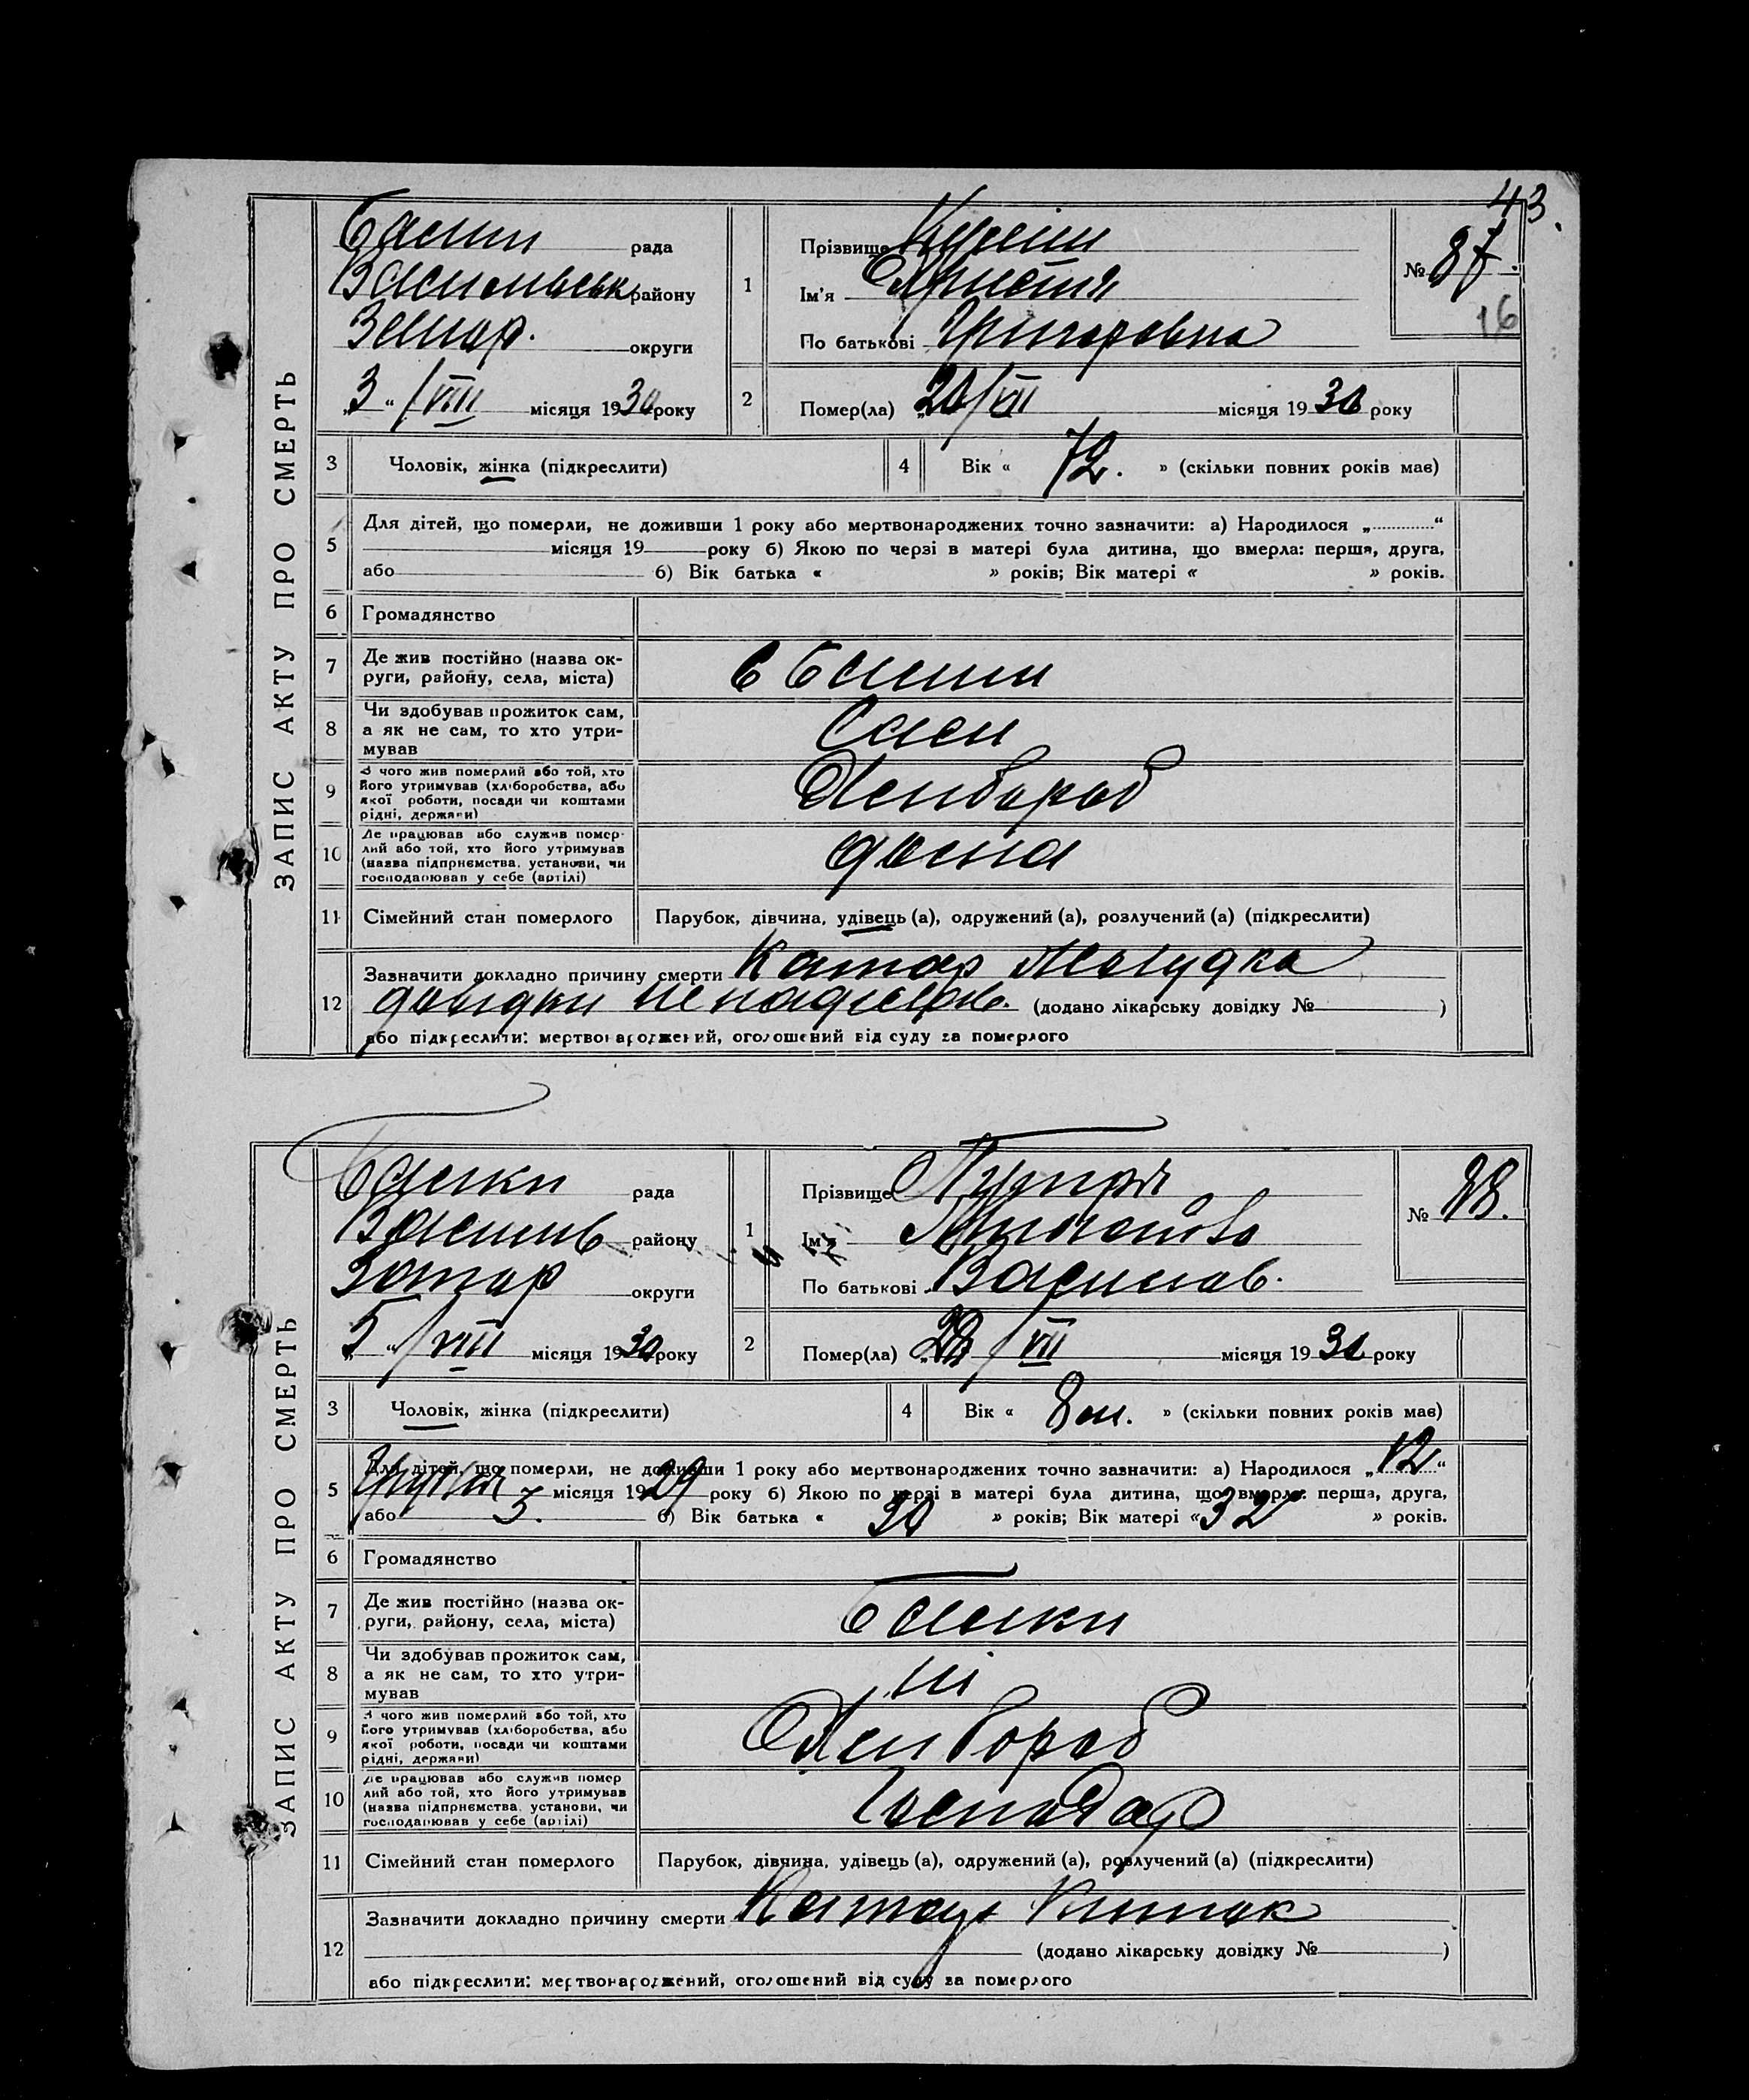 43.
ЗАПИС АКТУ ПРО СМЕРТЬ
рада
Васильевськ району
округи
„3“ /VIII місяця 1930 року
1
Прізвище
Ім'я Христя
По батькові Григоровна
№ 87.
16
2 Помер(ла) „20/VII місяця 1930 року
3 Чоловік, жінка (підкреслити)
4 Вік « 72. » (скільки повних років має)
5 Для дітей, що померли, не доживши 1 року або мертвонароджених точно зазначити: а) Народилося „ “
місяця 19 року б) Якою по черзі в матері була дитина, що вмерла: перша, друга,
або б) Вік батька « » років; Вік матері « » років.
6 Громадянство
7 Де жив постійно (назва ок-
руги, району, села, міста)
8 Чи здобував прожиток сам,
а як не сам, то хто утри-
мував
Сама
9 З чого жив померлий або той, хто
його утримував (хліборобства, або
якої роботи, посади чи коштами
рідні, держави)
Хлибороб
10 Де працював або служив помер-
лий або той, хто його утримував
(назва підприємства, установи, чи
господарював у себе (артілі)
дома
11 Сімейний стан померлого
Парубок, дівчина, удівець (а), одружений (а), розлучений (а) (підкреслити)
12 Зазначити докладно причину смерти Катар Желудка
довидки (додано лікарську довідку № )
або підкреслити: мертвонароджений, оголошений від суду за померлого
ЗАПИС АКТУ ПРО СМЕРТЬ
Балки рада
Василів району
Запор округи
„5“ /VIII місяця 1930 року
1
Прізвище
Ім'я
По батькові Василів.
№ 88.
2 Помер(ла) /VII місяця 1930 року
3 Чоловік, жінка (підкреслити)
4 Вік « 8 м. » (скільки повних років має)
5 Для дітей, що померли, не доживши 1 року або мертвонароджених точно зазначити: а) Народилося „12“
Грудня місяця 1929 року б) Якою по черзі в матері була дитина, що вмерла: перша, друга,
або 3. б) Вік батька « 30 » років; Вік матері « 32 » років.
6 Громадянство
7 Де жив постійно (назва ок-
руги, району, села, міста)
Балки
8 Чи здобував прожиток сам,
а як не сам, то хто утри-
мував
ні
9 З чого жив померлий або той, хто
його утримував (хліборобства, або
якої роботи, посади чи коштами
рідні, держави)
Хлибороб
10 Де працював або служив помер
лий або той, хто його утримував
(назва підприємства, установи, чи
господарював у себе (артілі)
Господар
11 Сімейний стан померлого
Парубок, дівчина, удівець (а), одружений (а), розлучений (а) (підкреслити)
12 Зазначити докладно причину смерти Катар Кишок
(додано лікарську довідку № )
або підкреслити: мертвонароджений, оголошений від суду за померлого